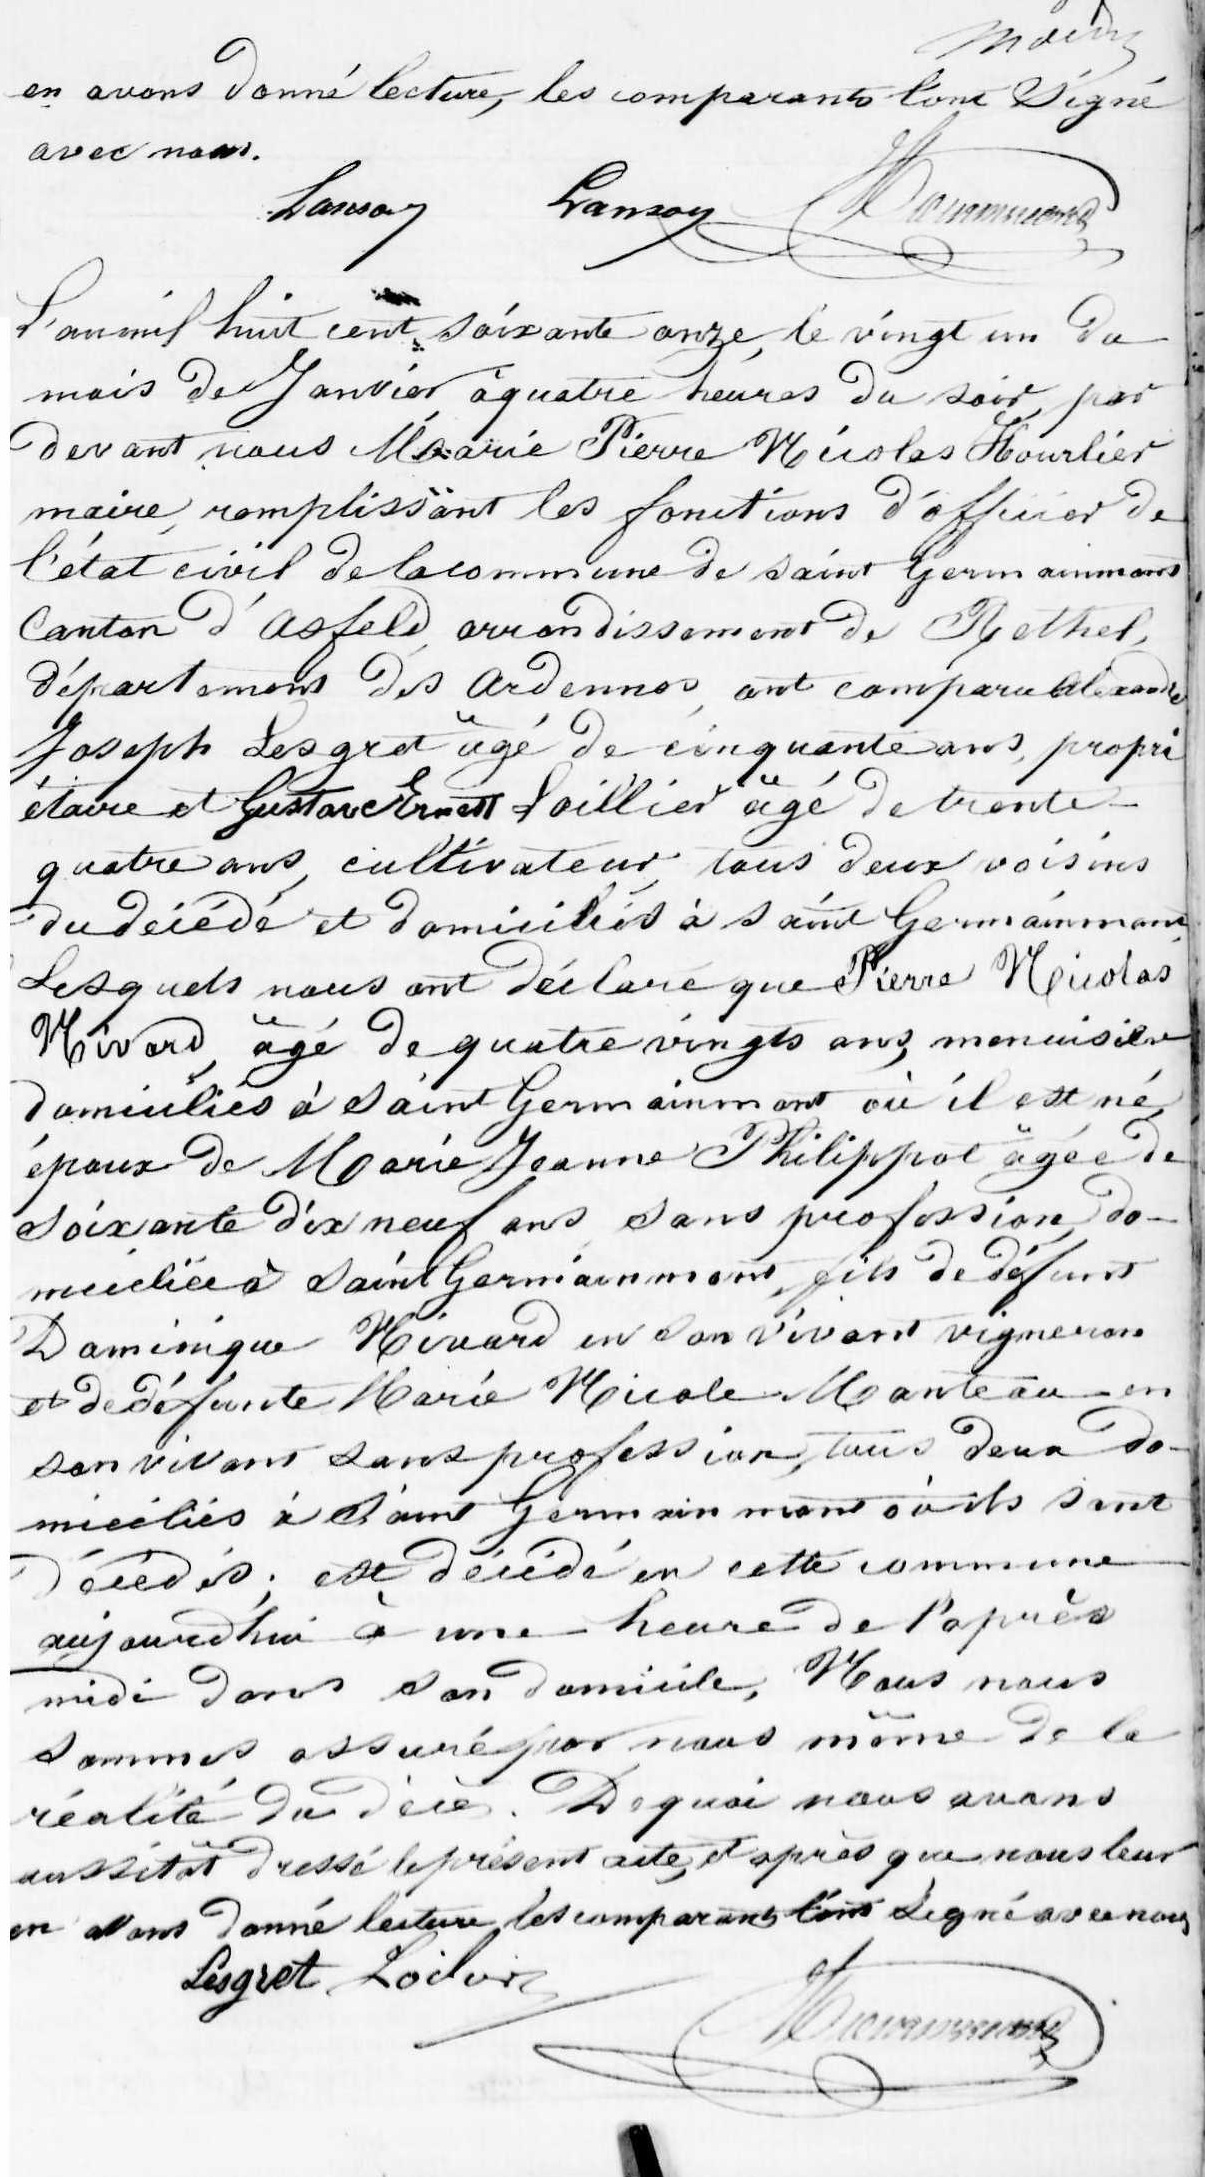 en avons donné lecture, les comparants l'ont Signé
avec nous.
Lansoy Lansoy
L'an mil huit cent soixante onze, le vingt un du
mois de Janvier à quatre heures du soir, par
devant nous Marie Pierre Nicolas Hourlier
maire, remplissant les fonctions d'officier de
l'état civil de la commune de saint Germainmont
Canton d'Asfeld, arrondissement de Rethel,
département des Ardennes, ont comparu Alexandre
Joseph Lesgret âgé de cinquante ans, propri
étaire et Gustave Ernest Loillier âgé de trente
quatre ans, cultivateur, tous deux voisins
du décédé et domiciliés à saint Germainmont,
Lesquels nous ont déclaré que Pierre Nicolas
Nivard, âgé de quatre vingts ans, menuisier
domiciliés à Saint Germainmont où il est né,
époux de Marie Jeanne Philippot âgée de
soixante dix neuf ans, sans profession, do-
miciliée à Saint Germainmont, fils de défunt
Dominique Nivard en son vivant vigneron
et de défunte Marie Nicole Manteau en
son vivant sans profession, tous deux do-
miciliés à Saint Germainmont où ils sont
décédés; est décédé en cette commune
aujourd'hui à une heure de l'après
midi dans son domicile, Nous nous
sommes assuré par nous même de la
réalité du décès. De quoi nous avons
aussitôt dressé le présent acte, et après que nous leur
en avons donné lecture, les comparants l'ont Signé avec nous
Lesgret